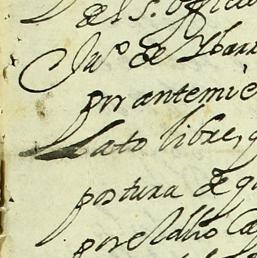 del S. offici
Ju.º de Ybarr
por ante mi e
lato libre, q
postura de q
por el dho